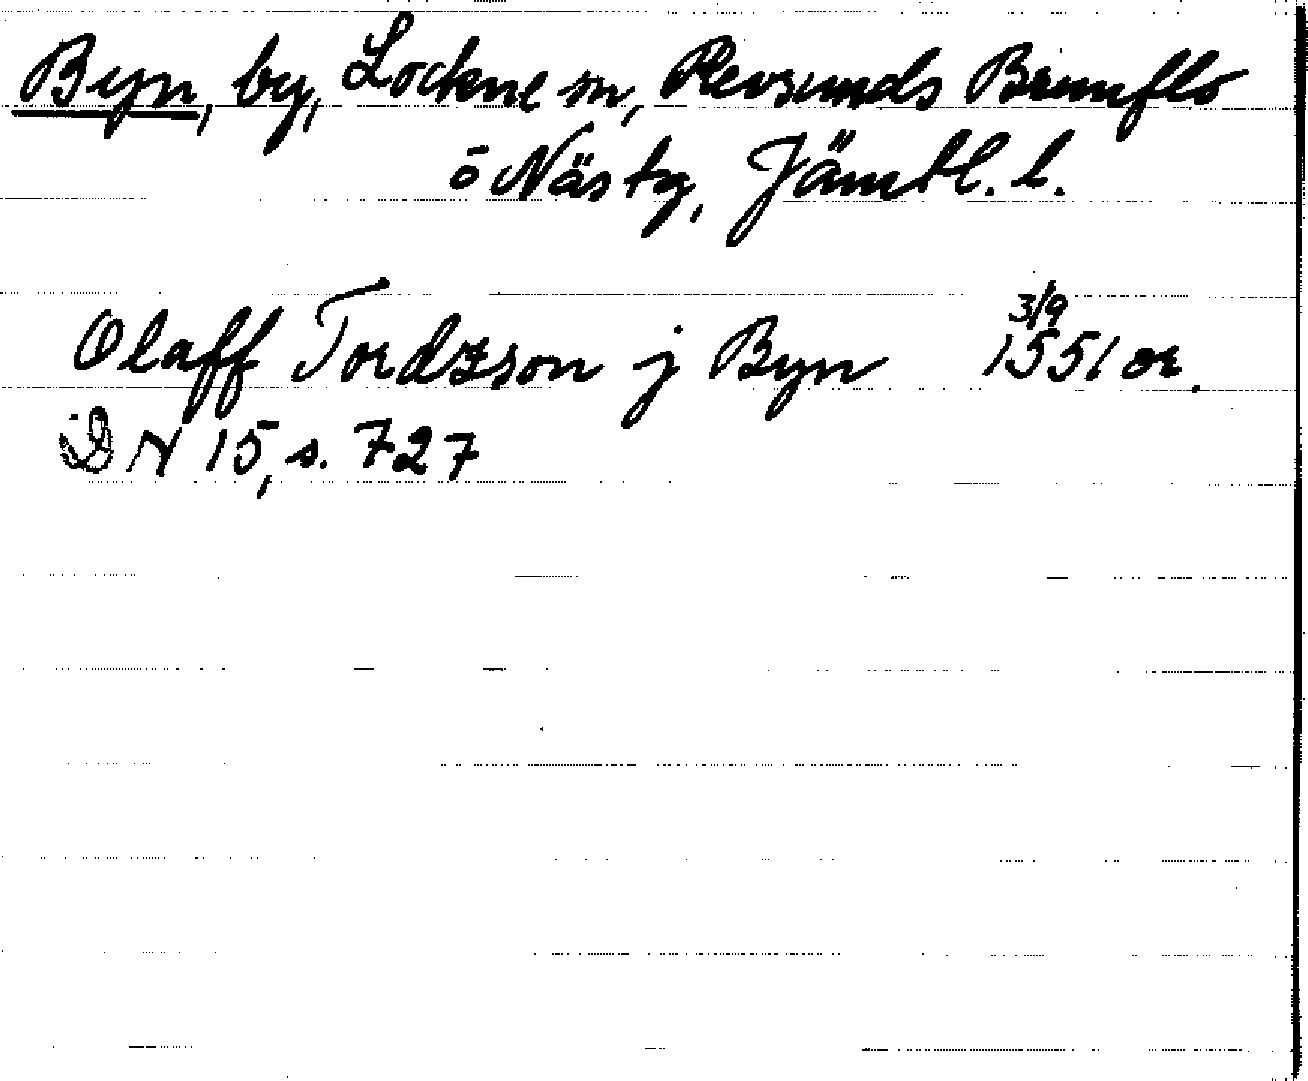 Byn, by, Lockne sn, Revsunds Brunflo
o Näs tg, Jämtl. l.
Olaff Tordzson j Byn 3/9 1551 or.
DN 15, s. 727